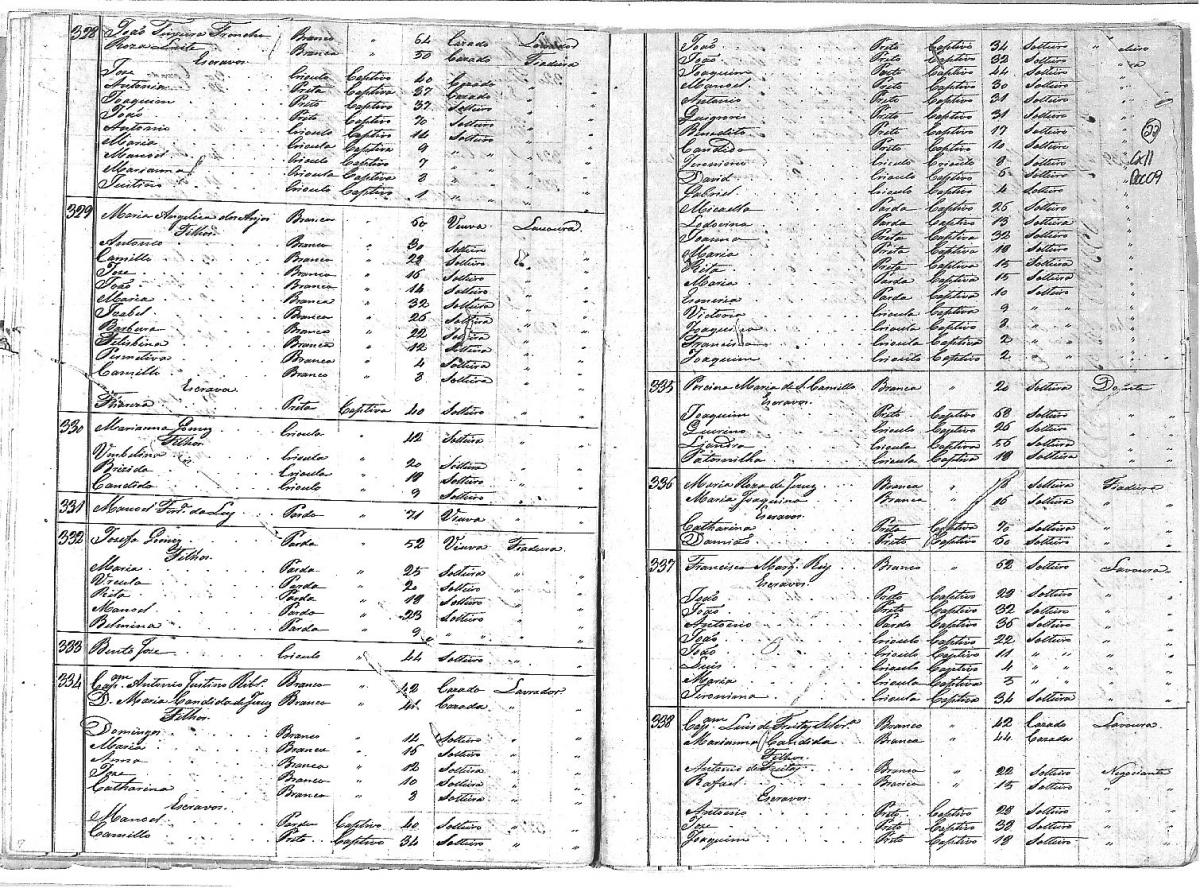 328 João Branco " 54 Cazado Lavrador
Roza Leite Branca " 50 Cazada Fiadeira
Escravos
Jose Crioulo Captivo 40 Cazado "
Antonia Preta Captiva 27 Cazada "
Joaquim Preto Captivo 37 Solteiro "
João Preto Captivo 70 Solteiro "
Antonio Crioulo Captivo 14 Solteiro "
Maria Crioula Captiva 9 " " "
Manoel Crioulo Captivo 7 " "
Marianna Crioula Captiva 3 " "
Justino Crioulo Captivo 1 " " "
329 Maria Angelica dos Anjos Branca " 50 Veuva Lavoura
Filhos
Antonio Branco " 30 Solteiro "
Camillo Branco " 28 Solteiro
Jose Branco " 16 Solteiro "
João Branco " 14 Solteiro "
Maria Branca " 32 Solteira "
Izabel Branca " 26 Solteira "
Barbara Branca " 22 Solteira "
Branca " 12 Solteira "
Branco " 4 Solteira "
Camillo Branco " 3 Solteiro "
Escrava
Preta Captiva 40 Solteira "
330 Marianna Gomes Crioula " 42 Solteira "
Filhos
Umbelina Crioula " 20 Solteira "
Brizida Crioula " 18 Solteira "
Candido Crioulo " 9 Solteiro "
331 Manoel Ferra. da Luz Pardo " 71 Veuvo "
332 Josefa Gomes Parda " 52 Veuva Fiadeira
Filhos
Maria Parda " 25 Solteira "
Ursula Parda " 20 Solteira "
Rita Parda " 18 Solteira "
Manoel Pardo " 23 Solteiro "
Belmina Parda " 9 " " "
333 Bento Jose Crioulo " 44 Solteiro "
334 Capam. Antonio Justino Branco " 42 Cazado Lavrador
D. Maria Candida de Branca " 41 Cazada
Filhos
Domingos Branco " 14 Solteiro "
Maria Branca " 15 Solteira "
Anna Branca " 12 Solteira "
Jose Branco " 10 Solteiro "
Catharina Branca " 8 Solteira "
Escravos
Manoel Pardo Captivo 40 Solteiro "
Camillo Preto Captivo 34 Solteiro "
João Preto Captivo 34 Solteiro "
João Preto Captivo 32 Solteiro "
Joaquim Preto Captivo 44 Solteiro "
Manoel Preto Captivo 30 Solteiro "
Antonio Preto Captivo 31 Solteiro "
Preto Captivo 31 Solteiro "
Benedito Preto Captivo 17 Solteiro "
Candido Preto Captivo 10 Solteiro "
Jeronimo Crioulo 8 Solteiro "
David Crioulo Captivo 6 Solteiro "
Gabriel Crioulo Captivo 4 Solteiro "
Micaella Parda Captiva 25 Solteira "
Ledovina Parda Captiva 13 Solteira "
Joanna Preta Captiva 32 Solteira "
Maria Preta Captiva 18 Solteira "
Rita Preta Captiva 15 Solteira "
Maria Parda Captiva 15 Solteira "
Parda Captiva 10 Solteira "
Victoria Crioula Captiva 9 " " "
Joaquina Crioula Captiva 3 " "
Francisca Crioula Captiva 2 " "
Joaquim Crioulo Captivo 2 "
22
Cx11
Doc09
335 Porcina Maria de S. Camillo Branca " 20 Solteira Doente
Escravos
Joaquim Preto Captivo 58 Solteiro "
Crioulo Captivo 26 Solteiro "
Crioula Captiva 56 Solteira "
Patornilha Crioula Captiva 18 Solteira "
336 Maria Roza de Branca " Solteira Fiadeira
Maria Joaquina Branca " 16 Solteira "
Escravos
Catharina Preta Captiva 70 Solteira "
Damião Preto Captivo 50 Solteiro "
337 Francisco Marq. Branco " 52 Solteiro Lavoura
Escravos
João Preto Captivo 29 Solteiro "
João Preto Captivo 32 Solteiro "
Antonio Pardo Captivo 36 Solteiro "
João Crioulo Captivo 22 Solteiro "
João Crioulo Captivo 11 " " "
Luis Crioulo Captivo 4 " "
Maria Crioula Captiva 3 " "
Crioula Captiva 34 Solteira "
338 Capam. Luis de Branco " 42 Cazado Lavoura
Marianna Candida Branca " 44 Cazada
Filhos
Antonio de Branco " 22 Solteiro Negociante
Rafael Branco " 15 Solteiro "
Escravos
Antonio Preto Captivo 28 Solteiro "
Jose Preto Captivo 38 Solteiro "
Joaquim Preto Captivo 18 Solteiro "